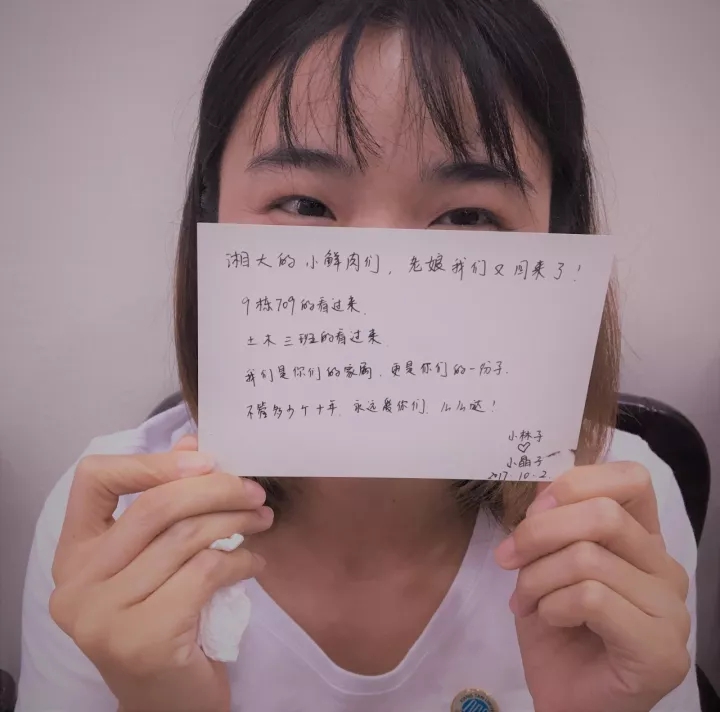 湘大的小鲜肉们，老娘我们又回来了！
9栋709的看过来.
土木三班的看过来.
我们是你们的家属、更是你们的一份子.
不管多少个十年、永远爱你们、么么哒！
小林子
♡
小晶子
2017.10.2.